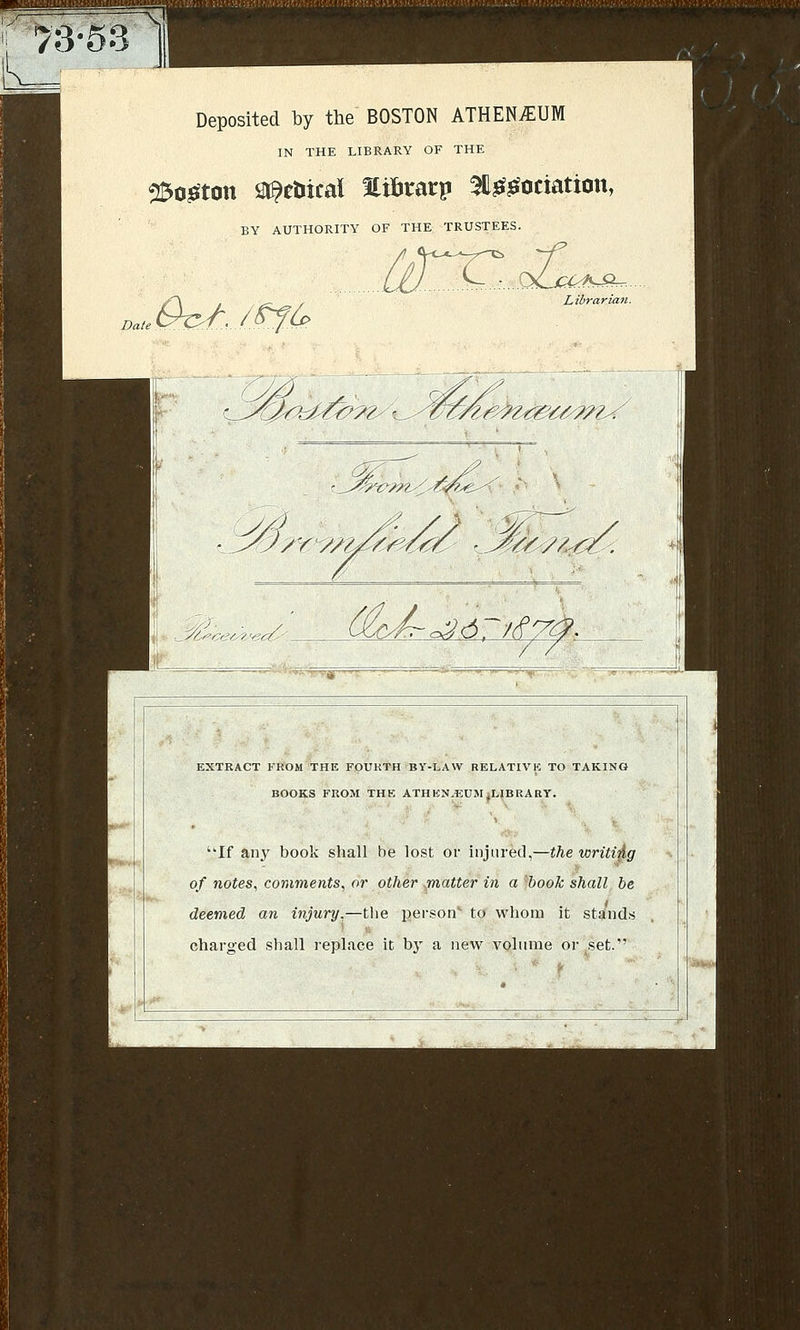 73·53
Deposited by the BOSTON ATHENÆUM
IN THE LIBRARY OF THE
Boston Medical Library Association,
BY AUTHORITY OF THE TRUSTEES.
Wm C. Lane
Librarian.
Date Oct. 1896
Boston Athenæum.
From the
Bromfield Fund.
Received Oct. 25, 1879.
EXTRACT FROM THE FOURTH BY-LAW RELATIVE TO TAKING
BOOKS FROM THE ATHENÆUM LIBRARY.
"If any book shall be lost or injured,—the writing
of notes, comments, or other matter in a book shall be
deemed an injury,—the person to whom it stands
charged shall replace it by a new volume or set."